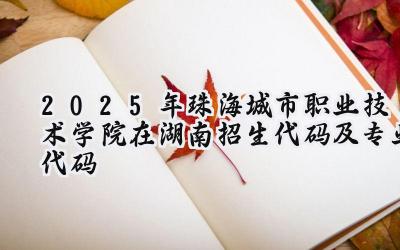 2025年珠海城市职业技
术学院在湖南招生代码及专业
代码